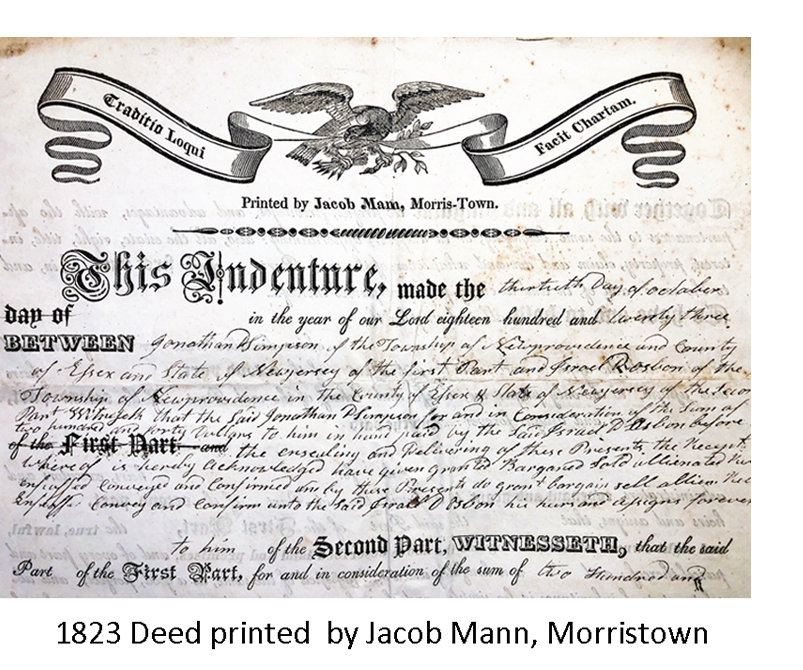 Traditio Loqui
Facit Chartam.
Printed by Jacob Mann, Morris-Town.
This Indenture, made the thirtieth Day of october
day of in the year of our Lord eighteen hundred and twenty three
BETWEEN Jonathan D Simpson of the Township of Newprovidence and County
of Essex and State of Newjersey of the first Part and Israel D Osbon of the
Township of Newprovidence in the County of Essex & State of Newjersey of the Secon
Part Witnesseth that the Said Jonathan D Simpson for and in Consideration of the Sum of
two hundred and forty Dollars to him in hand paid by the Said Israel D Osbon before
of the First Part and the ensealing and Delivering of these Presents the Receipt
Whereof is hereby acknowledged have given granted Barganed Sold allienated
Enfeffed Conveyed and Confirmed and by these Presents do grant bargain sell allien
Enfeffe Convey and Confirm unto the Said Israel D Osbon his heirs and assigns forever
to him of the Second Part, WITNESSETH, that the said
Part of the First Part, for and in consideration of the sum of two Hundred and
1823 Deed printed by Jacob Mann, Morristown